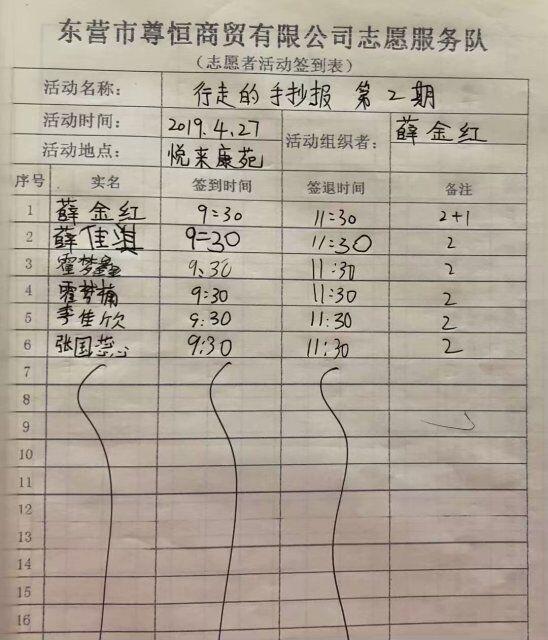 东营市尊恒商贸有限公司志愿服务队
（志愿者活动签到表）
活动名称： 行走的手抄报 第2期
活动时间： 2019.4.27 活动组织者： 薛金红
活动地点： 悦来康苑
序号 实名 签到时间 签退时间 备注
1 薛金红 9=30 11:30 2+1
2 薛佳 9=30 11:30 2
3 霍梦鑫 9:30 11:30 2
4 霍梦楠 9:30 11:30 2
5 李佳欣 9:30 11:30 2
6 张国蕊 9:30 11:30 2
7
8
9
10
11
12
13
14
15
16